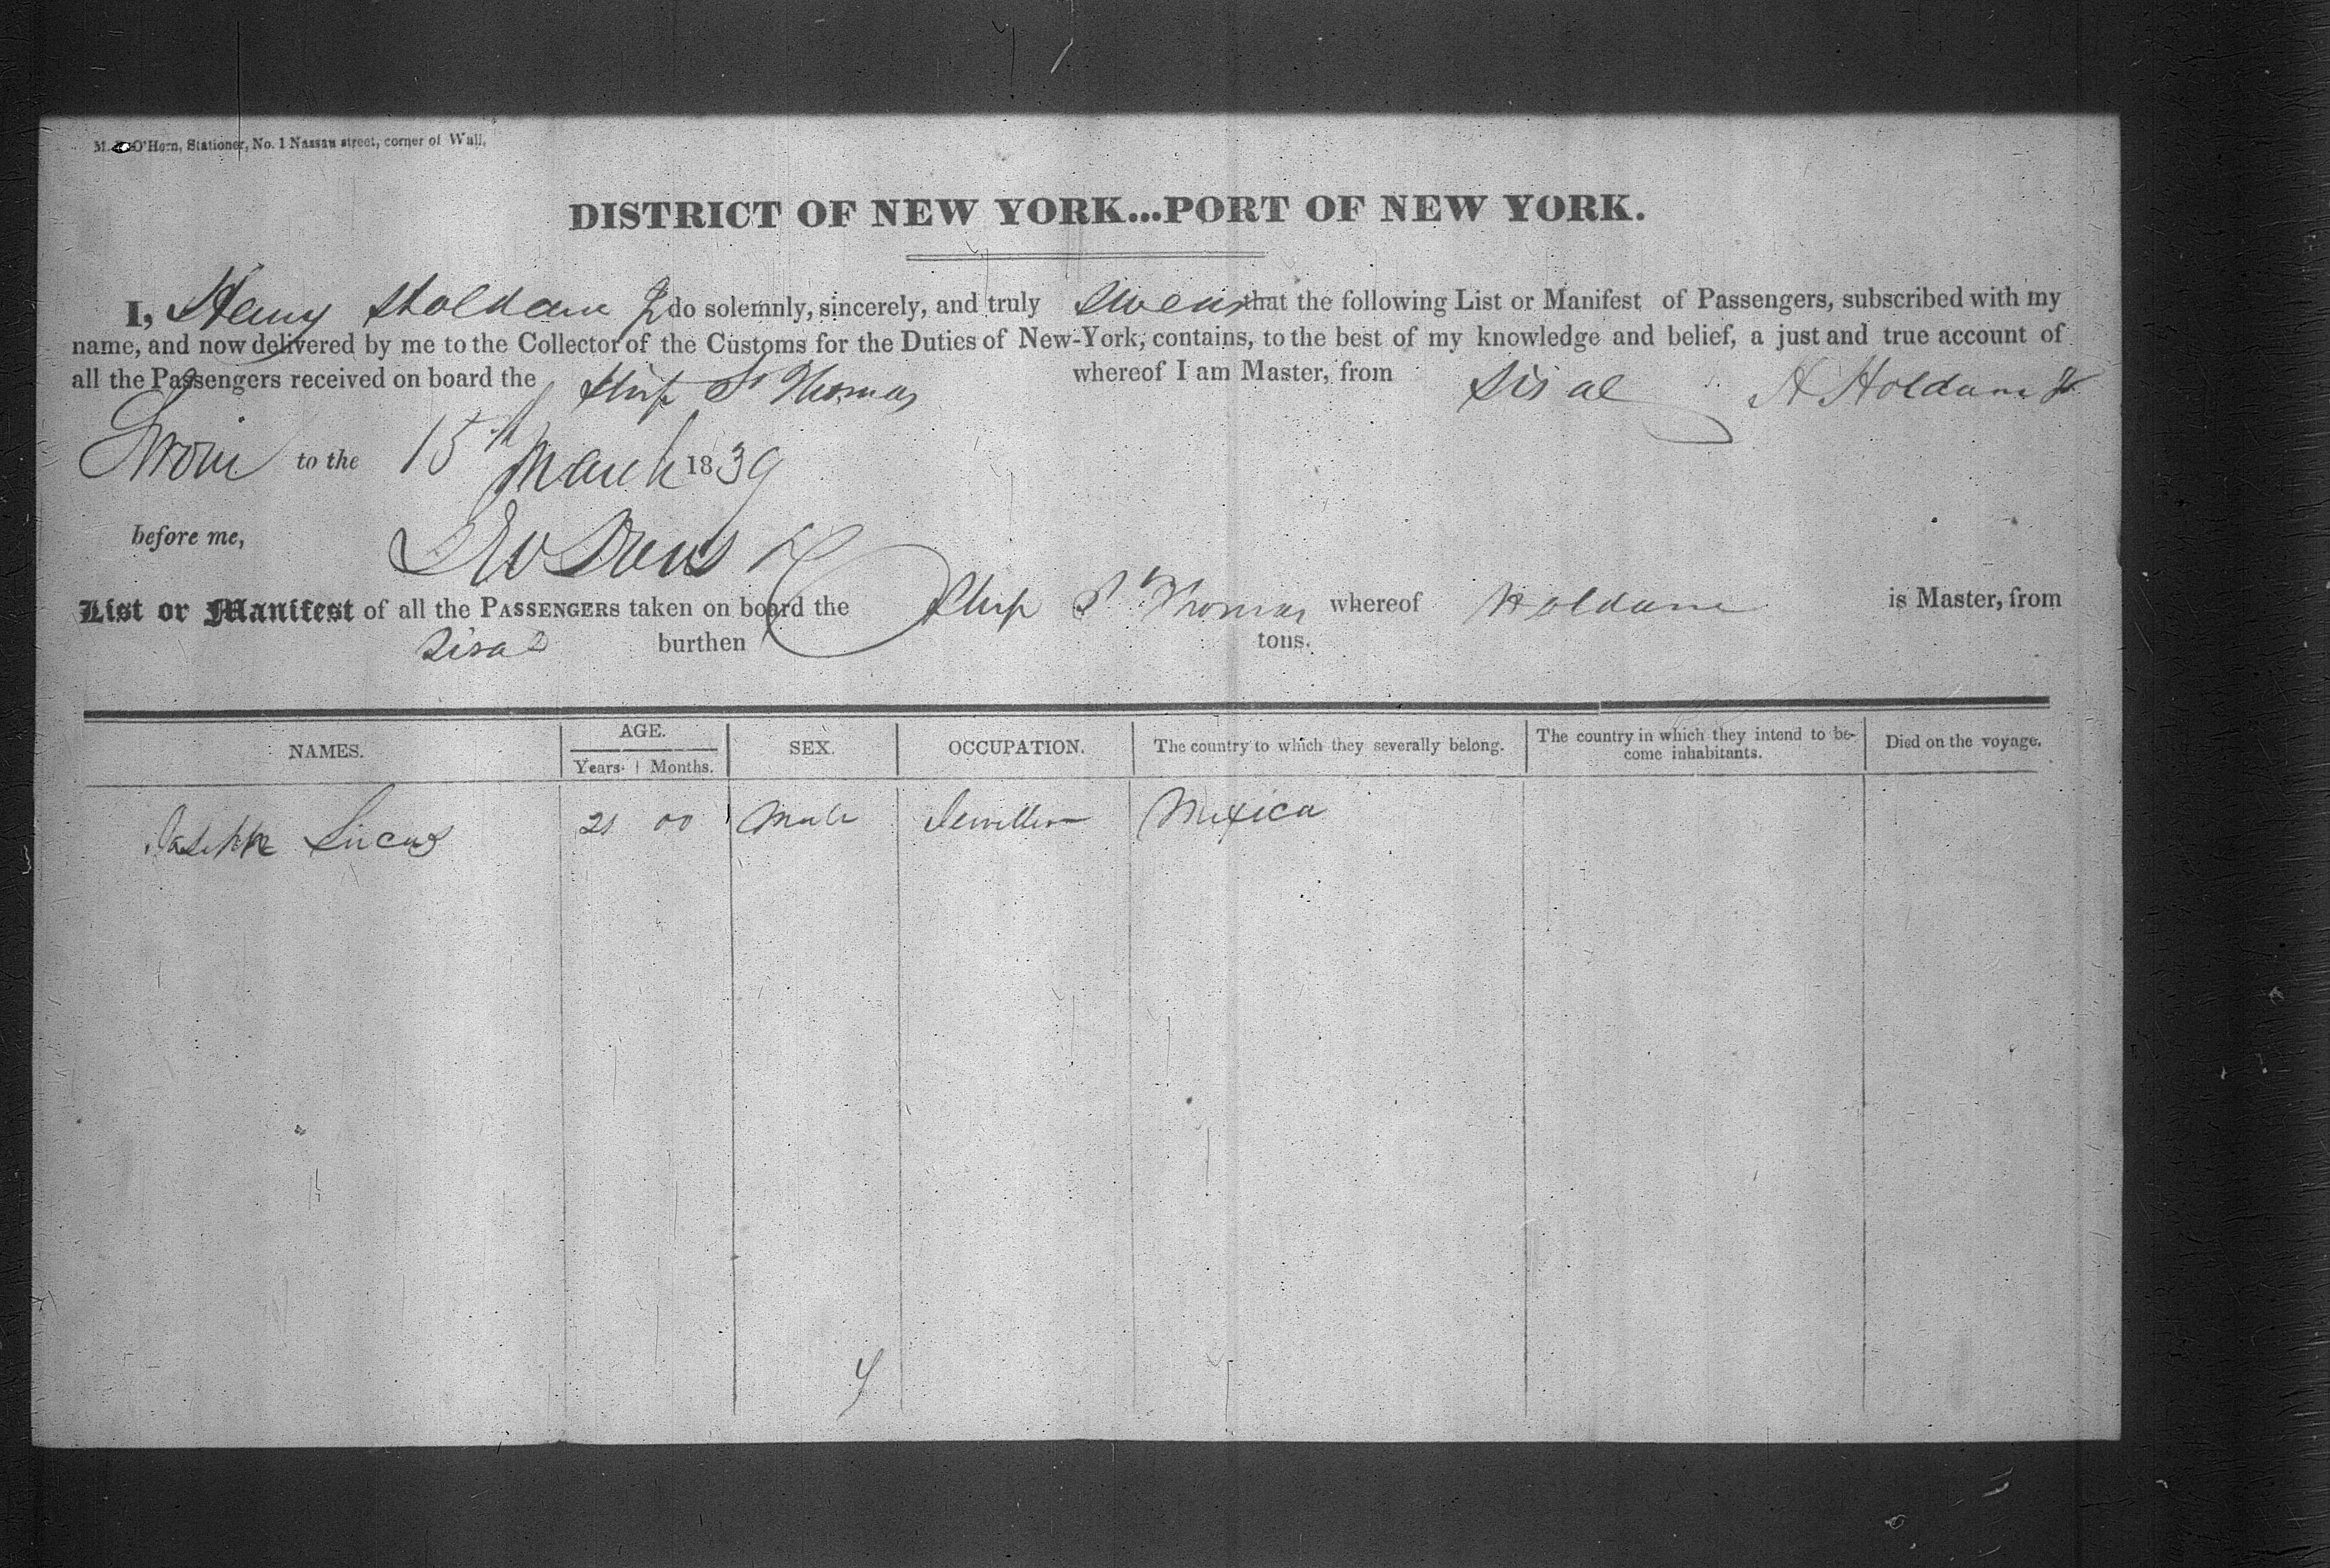 M. O'Hern, Stationer, No. 1 Nassau street, corner of Wall,
DISTRICT OF NEW YORK...PORT OF NEW YORK.
I, Henry Holdane Jr do solemnly, sincerely, and truly Swear that the following List or Manifest of Passengers, subscribed with my
name, and now delivered by me to the Collector of the Customs for the Duties of New-York, contains, to the best of my knowledge and belief, a just and true account of
all the Passengers received on board the Ship St Thomas whereof I am Master, from Sisal H Holdane Jr
Sworn to the 15th March 1839
before me,
List or Manifest of all the PASSENGERS taken on board the Ship St Thomas whereof Holdane is Master, from
Sisal burthen tons.
NAMES. AGE. SEX. OCCUPATION. The country to which they severally belong. The country in which they intend to be-come inhabitants. Died on the voyage.
Years. Months.
Joseph Lucas 21 00 Male Jeweller Mexico